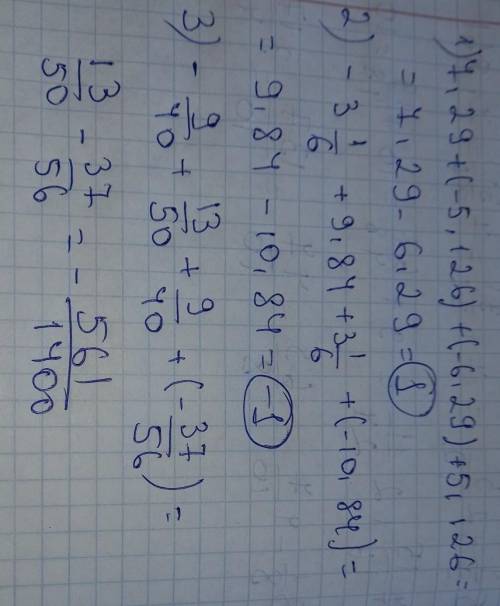 1) 7,29+(-5,126)+(-6,29)+5,126=
= 7,29 - 6,29 = 1
2) - 3 1/6 + 9,84 + 3 1/6 + (-10,84) =
= 9,84 - 10,84 = -1
3) - 9/40 + 13/50 + 9/40 + (- 37/56) =
13/50 - 37/56 = - 561/1400